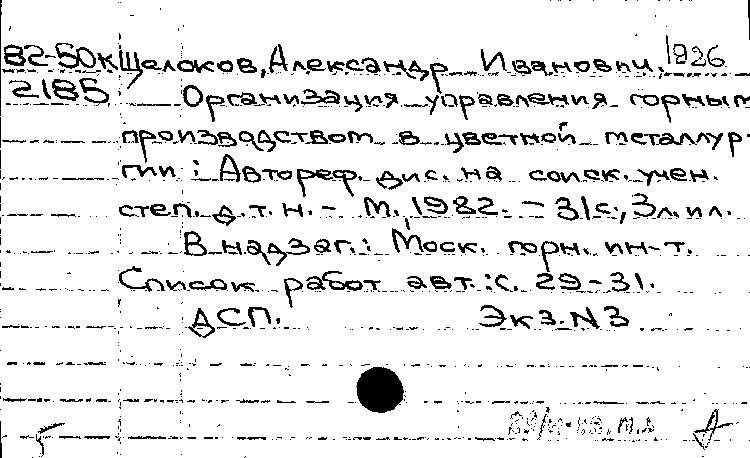 82-50к Щелоков, Александр Иванович, 1926
2185 Организация управления горным
производством в цветной металлур-
гии : Автореф. дис. на соиск. учен.
степ. д. т. н. - М., 1982. - 31 с., 3 л. ил.
В надзаг.: Моск. горн. ин-т.
Список работ авт.: с. 29-31.
ДСП. Экз. N 3
5